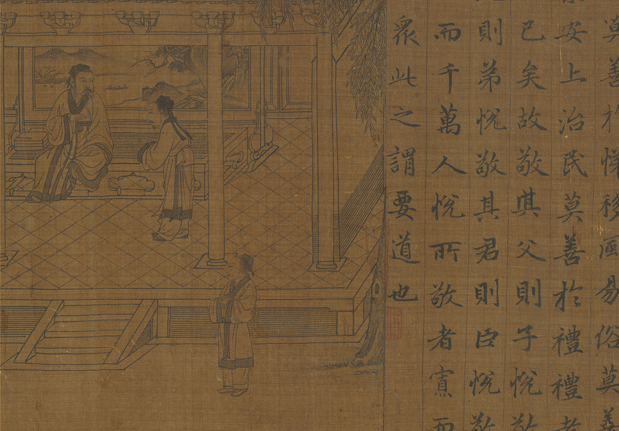 莫善於悌移風易俗莫善
安上治民莫善於禮禮者
已矣故敬其父則子悅敬
則弟悅敬其君則臣悅敬
而千萬人悅所敬者寡而
眾此之謂要道也